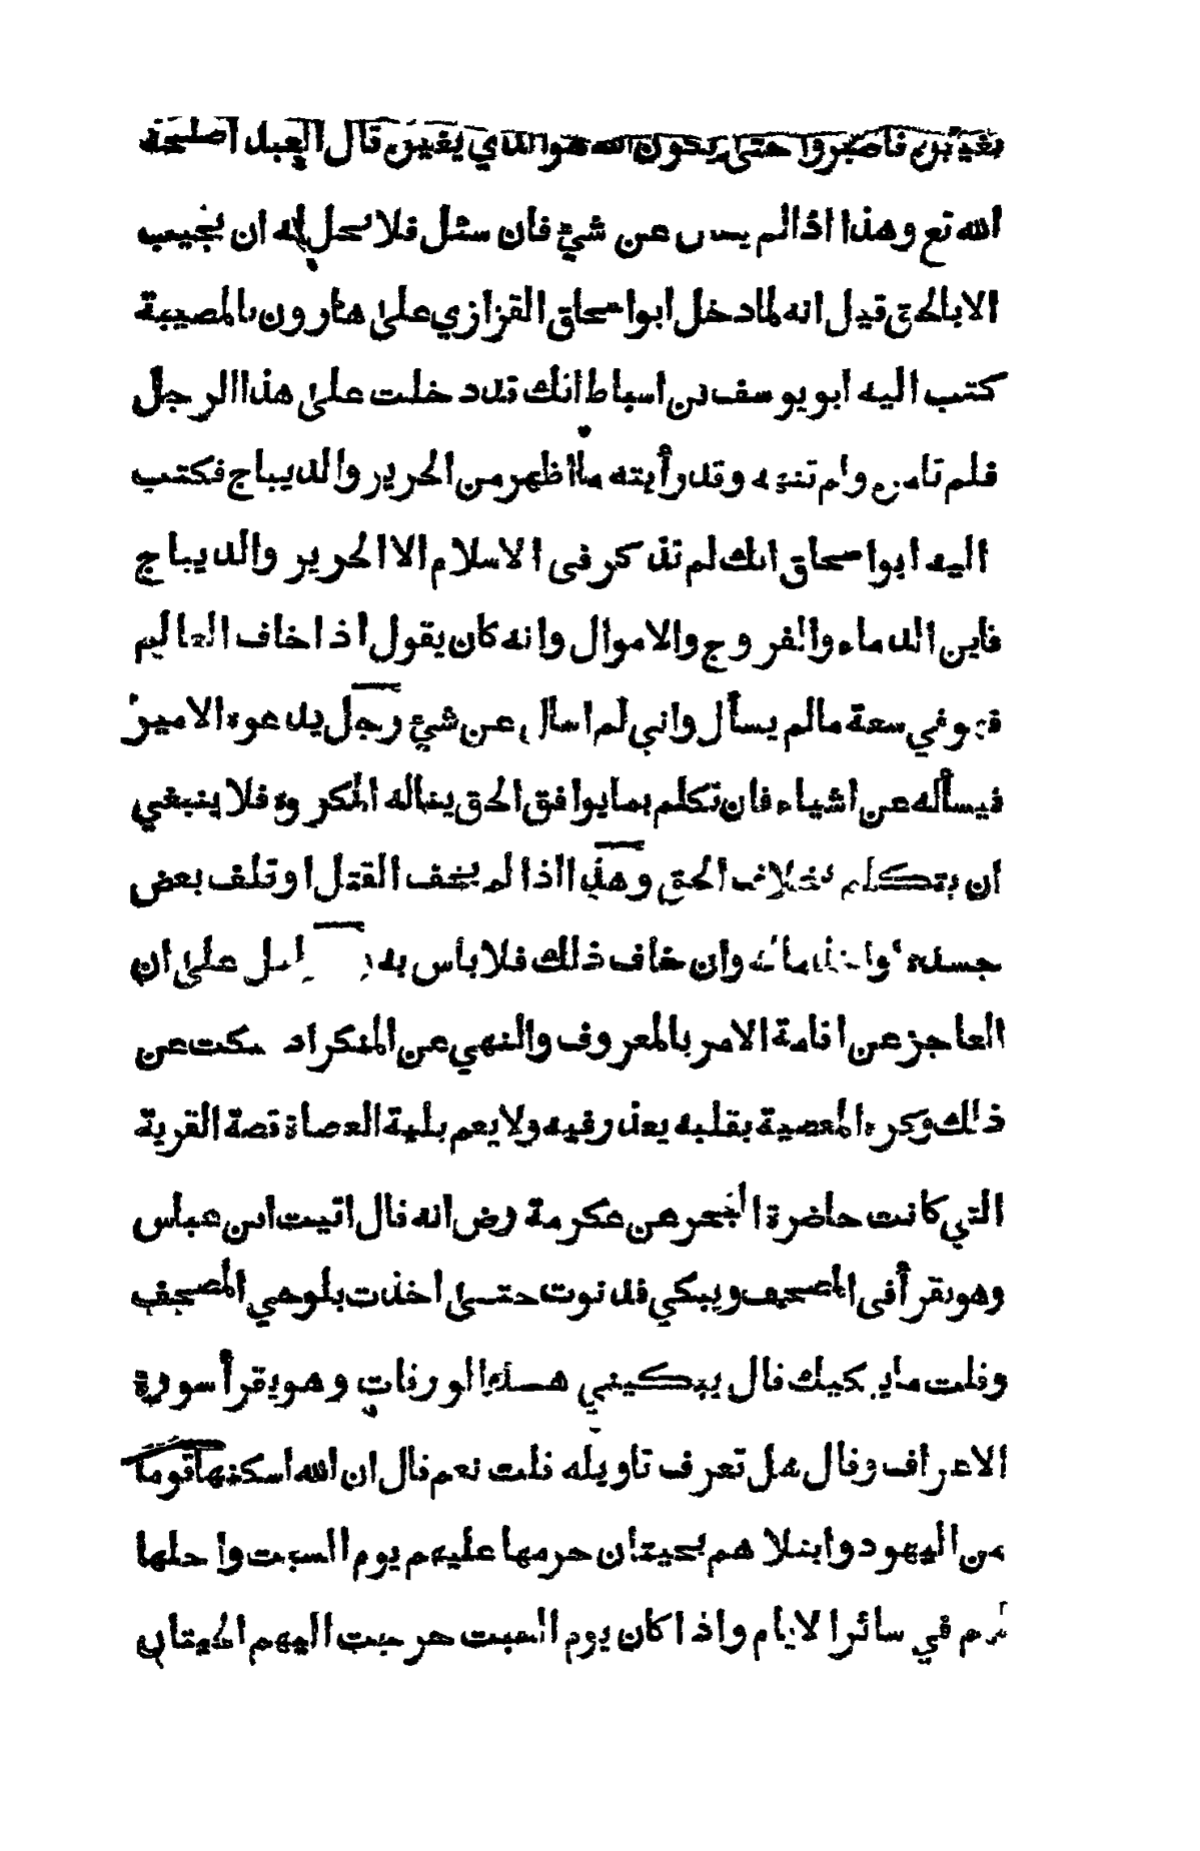 بغيير فاصبروا حتى يكون الله هو الذي يغير قال العبد اصلحه
الله تع وهذا اذا لم يسئل عن شيء فان سئل فلا يحل له ان يجيب
الا بالحق قيل انه لما دخل ابو اسحاق الفزازي على هارون بالمصيبة
كتب اليه ابو يوسف بن اسباط انك قد دخلت على هذا الرجل
فلم تامره ولم تنهه وقد رأيته ما اظهر من الحرير والديباج فكتب
اليه ابو اسحاق انك لم تذكر فى الاسلام الا الحرير والديباج
فاين الدماء والفروج والاموال وانه كان يقول اذا خاف العالم
فهو في سعة ما لم يسأل واني لم اسأل عن شيء رجل يدعوه الامير
فيسأله عن اشياء فان تكلم بما يوافق الحق يناله المكروه فلا ينبغي
ان يتكلم بخلاف الحق وهذا اذا لم يخف القتل او تلف بعض
جسده واخذ ماله وان خاف ذلك فلا بأس به على ان
العاجز عن اقامة الامر بالمعروف والنهي عن المنكر اذ سكت عن
ذلك وكره المعصية بقلبه يعذر فيه ولا يعم بلية العصاة قصة القرية
التي كانت حاضرة البحر عن عكرمة رض انه قال اتيت ابن عباس
وهو يقرأ فى المصحف ويبكي فدنوت حتى اخذت بلوحي المصحف
وقلت ما يبكيك قال يبكيني هذه الورقات وهو يقرأ سورة
الاعراف وقال هل تعرف تاويله قلت نعم قال ان الله اسكنها قوما
من اليهود وابتلاهم بحيتان حرمها عليهم يوم السبت واحلها
لهم في سائر الايام واذا كان يوم السبت خرجت اليهم الحيتان